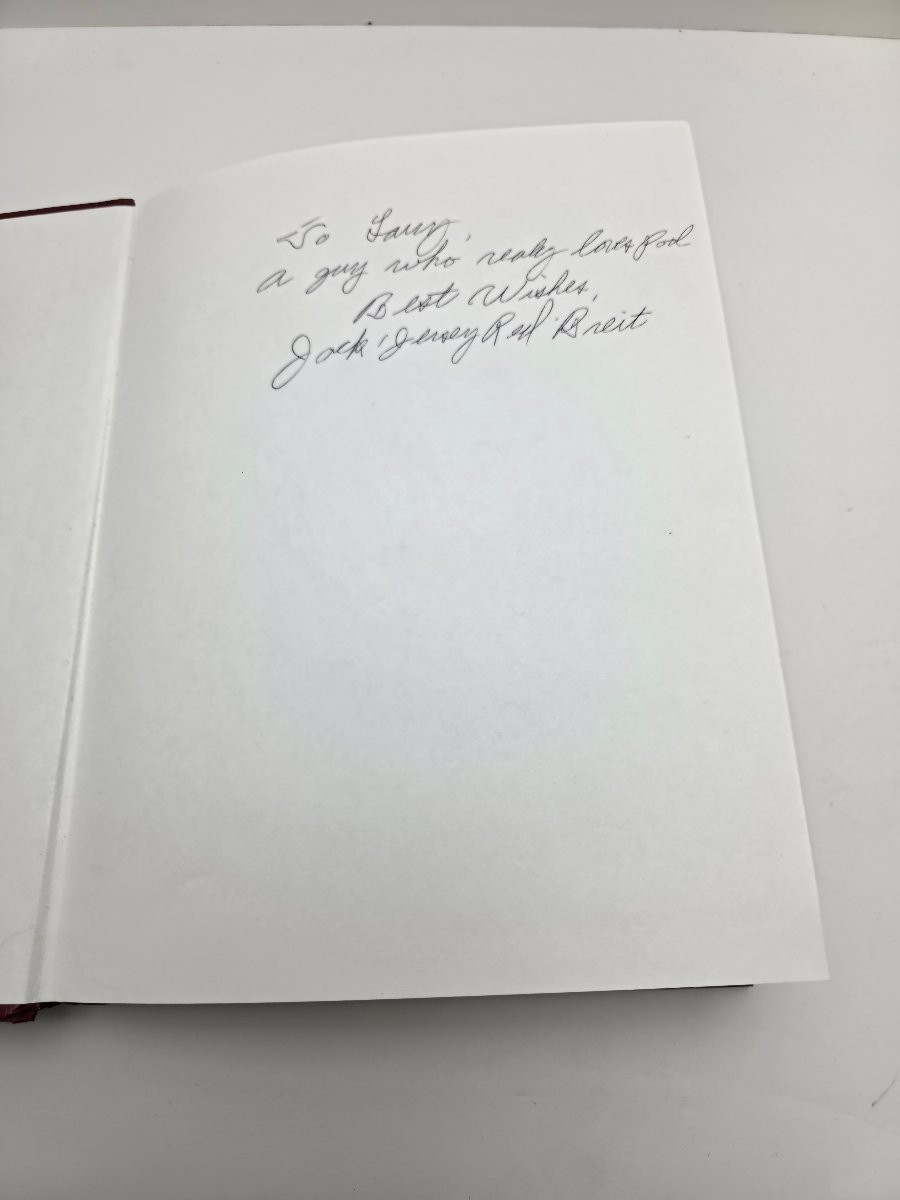 To Larry,
a guy who really loves Pool
Best Wishes,
Jack 'Jersey Red' Breit